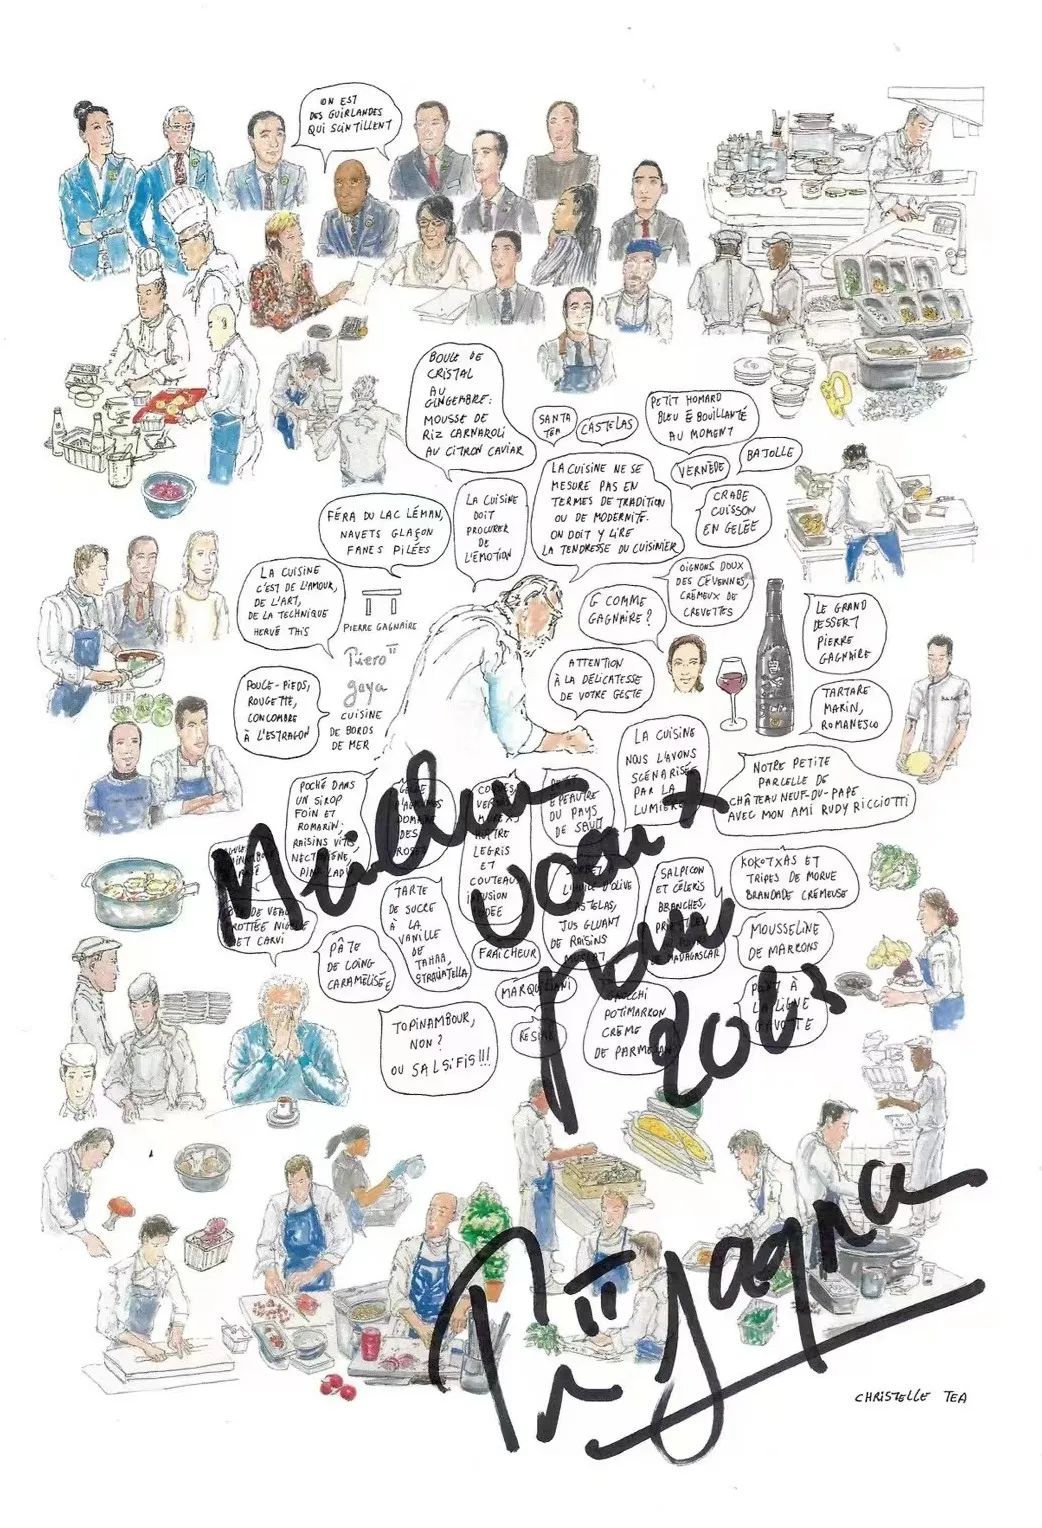 ON EST
DES GUIRLANDES
QUI SCINTILLENT
BOULE DE
CRISTAL
AU
GINGEMBRE:
MOUSSE DE
RIZ CARNAROLI
AU CITRON CAVIAR
SANTA
TEA
CASTELAS
PETIT HOMARD
BLEU ÉBOUILLANTÉ
AU MOMENT
VERNÈDE
BAJOLLE
FÉRA DU LAC LÉMAN,
NAVETS GLAÇON
FANES PILÉES
LA CUISINE
DOIT
PROCURER
DE
L'ÉMOTION
LA CUISINE NE SE
MESURE PAS EN
TERMES DE TRADITION
OU DE MODERNITÉ.
ON DOIT Y LIRE
LA TENDRESSE DU CUISINIER
CRABE
CUISSON
EN GELÉE
LA CUISINE
C'EST DE L'AMOUR,
DE L'ART,
DE LA TECHNIQUE
HERVÉ THIS
PIERRE GAGNAIRE
Piero
gaya
CUISINE
DE BORDS
DE MER
G COMME
GAGNAIRE?
OIGNONS DOUX
DES CÉVENNES,
CRÉMEUX DE
CREVETTES
LE GRAND
DESSERT
PIERRE
GAGNAIRE
POUCE-PIEDS,
ROUGETTE,
CONCOMBRE
À L'ESTRAGON
ATTENTION
À LA DÉLICATESSE
DE VOTRE GESTE
TARTARE
MARIN,
ROMANESCO
LA CUISINE
NOUS L'AVONS
SCÉNARISÉE
PAR LA
LUMIÈRE
NOTRE PETITE
PARCELLE DE
CHÂTEAU NEUF-DU-PAPE
AVEC MON AMI RUDY RICCIOTTI
POCHÉ DANS
UN SIROP
FOIN ET
ROMARIN:
RAISINS
DOMAINE
DES
LEGRIS
ET
COUTEAUX
ÉPEAUTRE
DU PAYS
DE SAULT
CÔTE DE VEAU
FROTTÉE NIGELLE
ET CARVI
PÂTE
DE COING
CARAMÉLISÉE
TARTE
DE SUCRE
À LA
VANILLE
DE
TAHAA,
STRACIATELLA
FRAÎCHEUR
L'HUILE D'OLIVE
CASTELAS,
JUS GLUANT
DE RAISINS
SALPICON
ET CÉLERIS
BRANCHES,
DE MADAGASCAR
KOKOTXAS ET
TRIPES DE MORUE
BRANDADE CRÉMEUSE
MOUSSELINE
DE MARRONS
TOPINAMBOUR,
NON?
OU SALSIFIS!!!
POTIMARRON
CRÈME
DE PARMESAN
À
LA LIGNE
Meilleurs
voeux
pour
2023
CHRISTELLE TEA